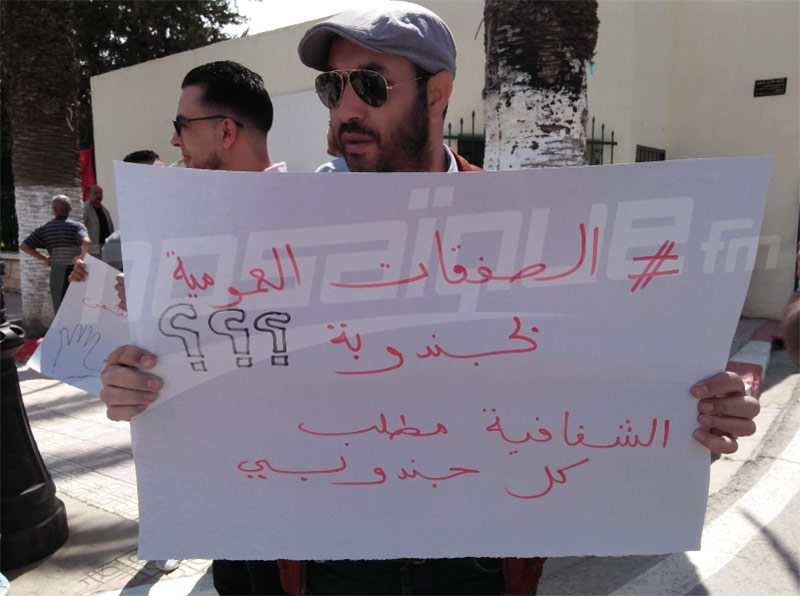 # الصفقات العمومية
بجندوبة ؟؟؟
الشفافية مطلب
كل جندوبي
mosaïque fm